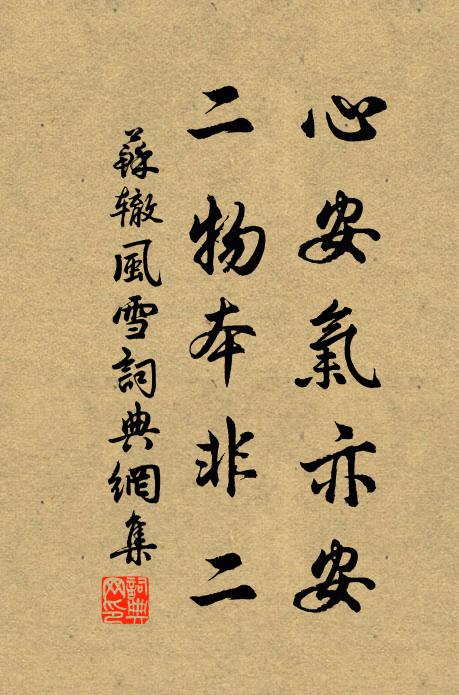 心安氣亦安
二物本非二
蘇辙風雪詞典網集
詞典
网印